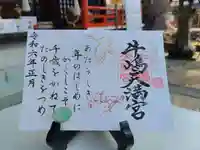 牛嶋天満宮
あたらしき
年のはじめに
かくしこそ
千歳をかねて
たのしきをつめ
令和六年正月